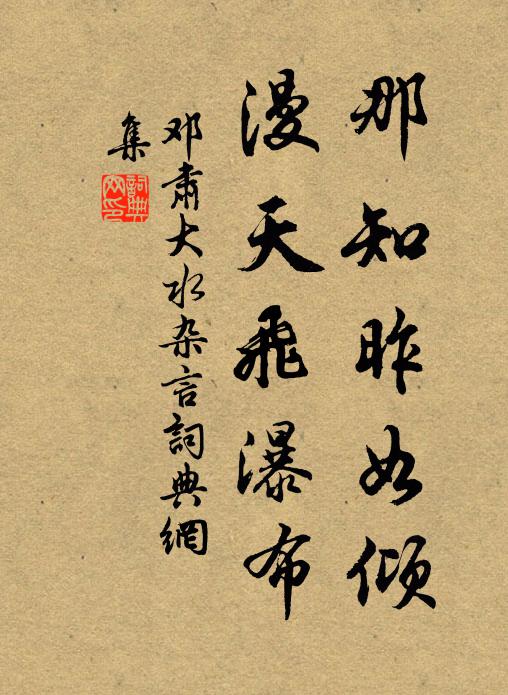 那知昨如倾
漫天飞瀑布
邓肃大水杂言詞典網
集
詞典
网印